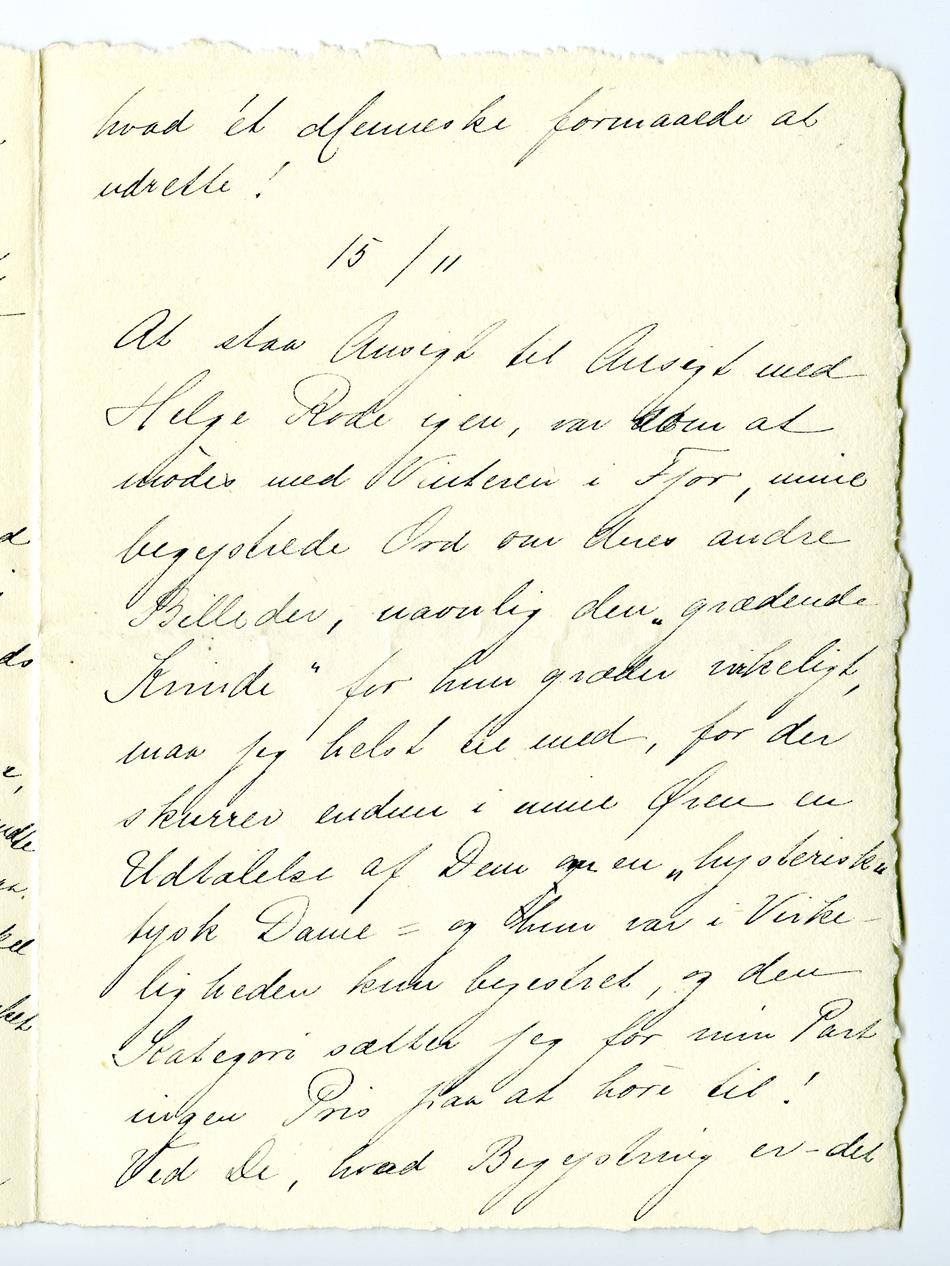 hvad ét Menneske formaaede at
udrette!
15/11
At staa Ansigt til Ansigt med
Helge Rode igen, var som at
mødes med Vinteren i Fjor, mine
begejstrede Ord om deres andre
Billeder, navnlig den „grædende
Kvinde“ for hun græder virkeligt,
maa jeg helst tie med, for der
skurrer endnu i mine Øren en
Udtalelse af Dem om en „hysterisk“
tysk Dame = og hun var i Virke-
ligheden kun begestret, og den
Kategori sætter jeg for min Part
ingen Pris paa at høre til!
Ved De, hvad Begejstring er – det